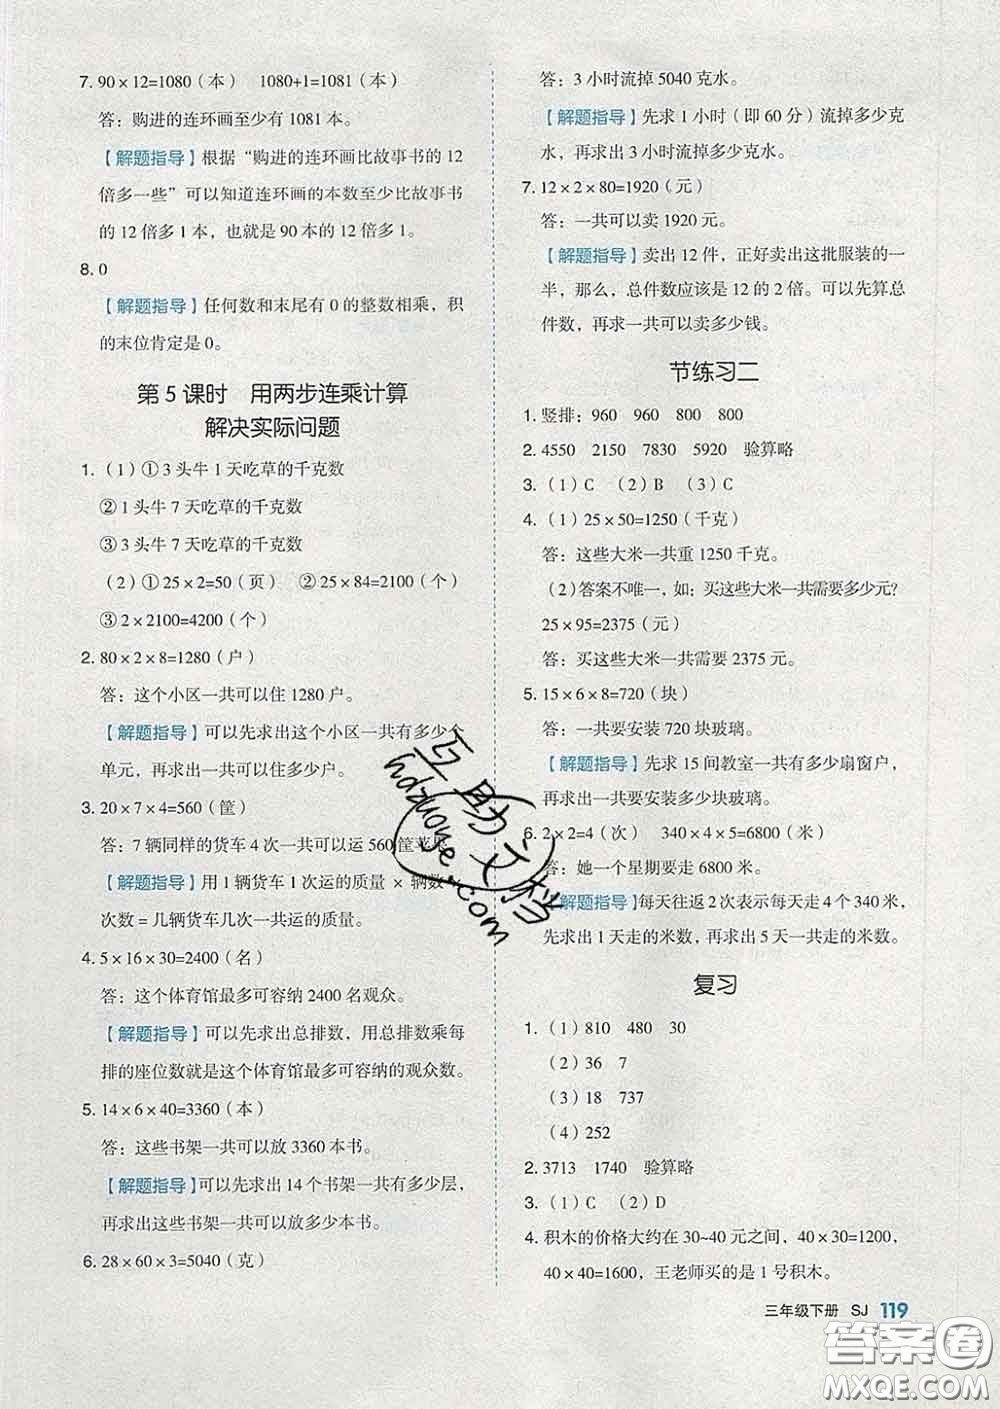 7. 90×12=1080（本） 1080+1=1081（本）
答：购进的连环画至少有 1081 本。
【解题指导】根据“购进的连环画比故事书的 12
倍多一些”可以知道连环画的本数至少比故事书
的 12 倍多 1 本，也就是 90 本的 12 倍多 1。
8. 0
【解题指导】任何数和末尾有 0 的整数相乘，积
的末位肯定是 0。
第 5 课时 用两步连乘计算
解决实际问题
1.（1）①3 头牛 1 天吃草的千克数
②1 头牛 7 天吃草的千克数
③3 头牛 7 天吃草的千克数
（2）①25×2=50（页） ②25×84=2100（个）
③2×2100=4200（个）
2. 80×2×8=1280（户）
答：这个小区一共可以住 1280 户。
【解题指导】可以先求出这个小区一共有多少个
单元，再求出一共可以住多少户。
3. 20×7×4=560（筐）
答：7 辆同样的货车 4 次一共可以运 560 筐苹果。
【解题指导】用 1 辆货车 1 次运的质量 × 辆数 ×
次数 = 几辆货车几次一共运的质量。
4. 5×16×30=2400（名）
答：这个体育馆最多可容纳 2400 名观众。
【解题指导】可以先求出总排数，用总排数乘每
排的座位数就是这个体育馆最多可容纳的观众数。
5. 14×6×40=3360（本）
答：这些书架一共可以放 3360 本书。
【解题指导】可以先求出 14 个书架一共有多少层，
再求出这些书架一共可以放多少本书。
6. 28×60×3=5040（克）
答：3 小时流掉 5040 克水。
【解题指导】先求 1 小时（即 60 分）流掉多少克
水，再求出 3 小时流掉多少克水。
7. 12×2×80=1920（元）
答：一共可以卖 1920 元。
【解题指导】卖出 12 件，正好卖出这批服装的一
半，那么，总件数应该是 12 的 2 倍。可以先算总
件数，再求一共可以卖多少钱。
节练习二
1. 竖排：960 960 800 800
2. 4550 2150 7830 5920 验算略
3.（1）C （2）B （3）C
4.（1）25×50=1250（千克）
答：这些大米一共重 1250 千克。
（2）答案不唯一，如：买这些大米一共需要多少元？
25×95=2375（元）
答：买这些大米一共需要 2375 元。
5. 15×6×8=720（块）
答：一共要安装 720 块玻璃。
【解题指导】先求 15 间教室一共有多少扇窗户，
再求出一共要安装多少块玻璃。
6. 2×2=4（次） 340×4×5=6800（米）
答：她一个星期要走 6800 米。
【解题指导】每天往返 2 次表示每天走 4 个 340 米，
先求出 1 天走的米数，再求出 5 天一共走的米数。
复习
1.（1）810 480 30
（2）36 7
（3）18 737
（4）252
2. 3713 1740 验算略
3.（1）C （2）D
4. 积木的价格大约在 30~40 元之间，40×30=1200，
40×40=1600，王老师买的是 1 号积木。
三年级下册 SJ 119
互助文档
hdzuoye.com
答案圈
MXQE.COM